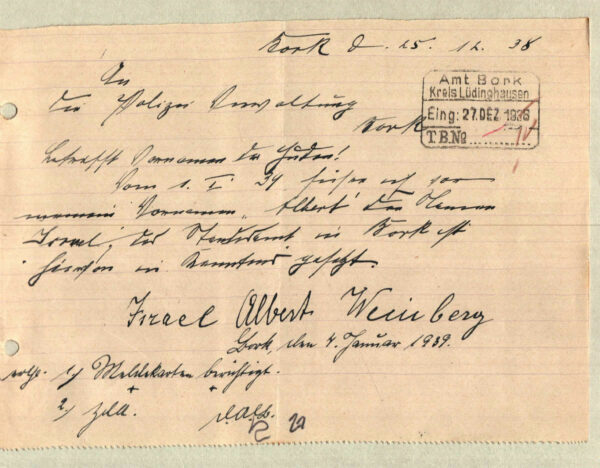 Bork d. 25. 12. 38
An
die Polizei Verwaltung
Bork
Amt Bork
Kreis Lüdinghausen
Eing: 27. DEZ. 1938
T.B.No
Betrefft Vornamen der Juden!
Vom 1. I. 39 führe ich vor
meinem Vornamen „Albert“ den Namen
Israel, das Standesamt in Bork ist
hiervon in Kenntnis gesetzt.
Israel Albert Weinberg
Bork, den 4. Januar 1939.
1.) Meldekarten berichtigt.
2.) z.d.A.